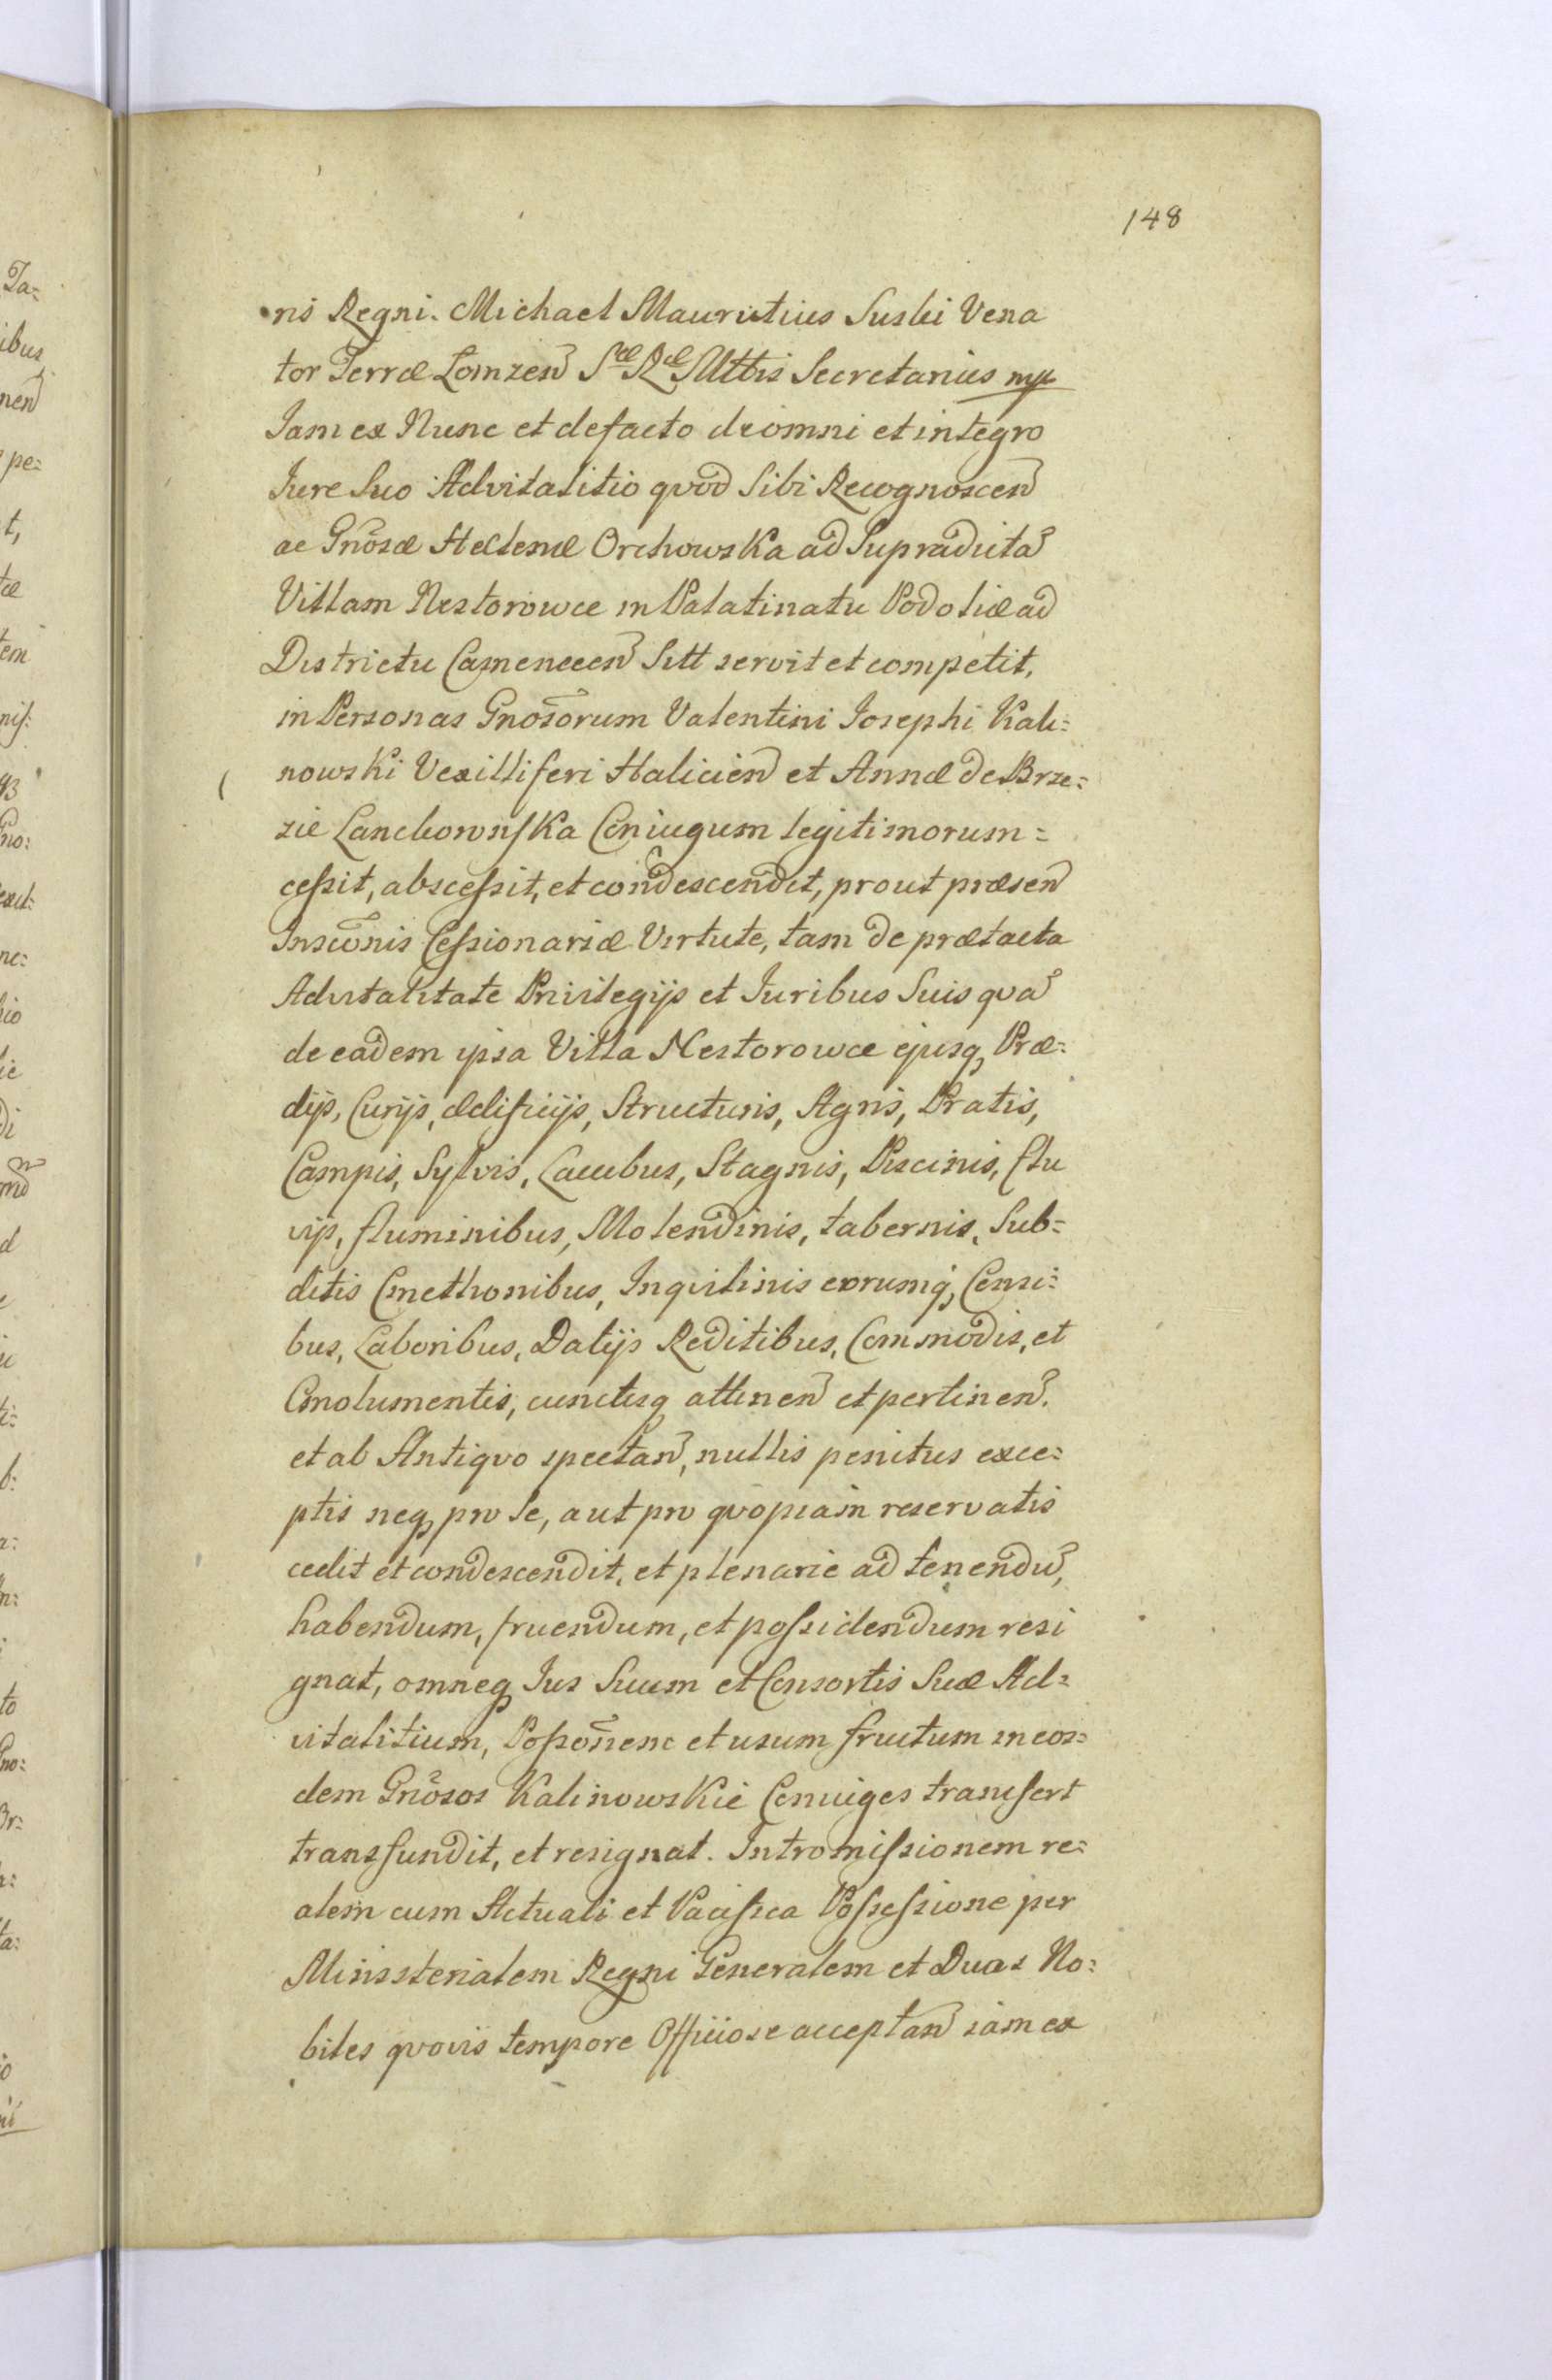 148
ris Regni. Michael Mauritius Suski Vena
tor Terræ Lomzen̄ Sæ Ræ Mttis Secretarius mp
Iam ex Nunc et defacto de omni et integro
Iure Suo Advitalitio quod Sibi Recognoscen̄
ac Gnōsæ Helenæ Orchowska ad Supradictā
Villam Nestorowce in Palatinatu Podoliæ ad
Districtu Camenecen̄ Sitt servit et competit,
in Personas Gnosōrum Valentini Iosephi Kali=
nowski Vexilliferi Halicien̄ et Annæ de Brze=
zie Lanckorońska Coniugum legitimorum=
cessit, abscessit, et condescendit, prout præsen̄
Inscōnis Cessionariæ Virtute, tam de prætacta
Advitalitate Privilegijs et Iuribus Suis qvā
de eadem ipsa Villa Nestorowce ejusq, Præ=
dijs, Curijs, ædificijs, Structuris, Agris, Pratis,
Campis, Sylvis, Lacubus, Stagnis, Piscinis, flu
vijs, fluminibus, Molendinis, tabernis, Sub=
ditis Cmethonibus, Inqvilinis eorumq, Censi=
bus, Laboribus, Datijs Reditibus, Commodis, et
Emolumentis, cunctisq attinen̄ et pertinen̄.
et ab Antiqvo spectan̄, nullis penitus exce=
ptis neq, pro Se, aut pro qvopiam reservatis
cedit et condescendit, et plenarie ad tenendū,
habendum, fruendum, et possidendum resi
gnat, omneq Ius Suum et Consortis Suæ Ad=
vitalitium, Possōnenc et usum fructum in eos=
dem Gnōsos Kalinowskie Coniuges transfert
transfundit, et resignat. Intromissionem re=
alem cum Actuali et Pacifica Possessione per
Ministerialem Regni Generalem et Duas No=
biles qvovis tempore Officiose acceptan̄ iam ex